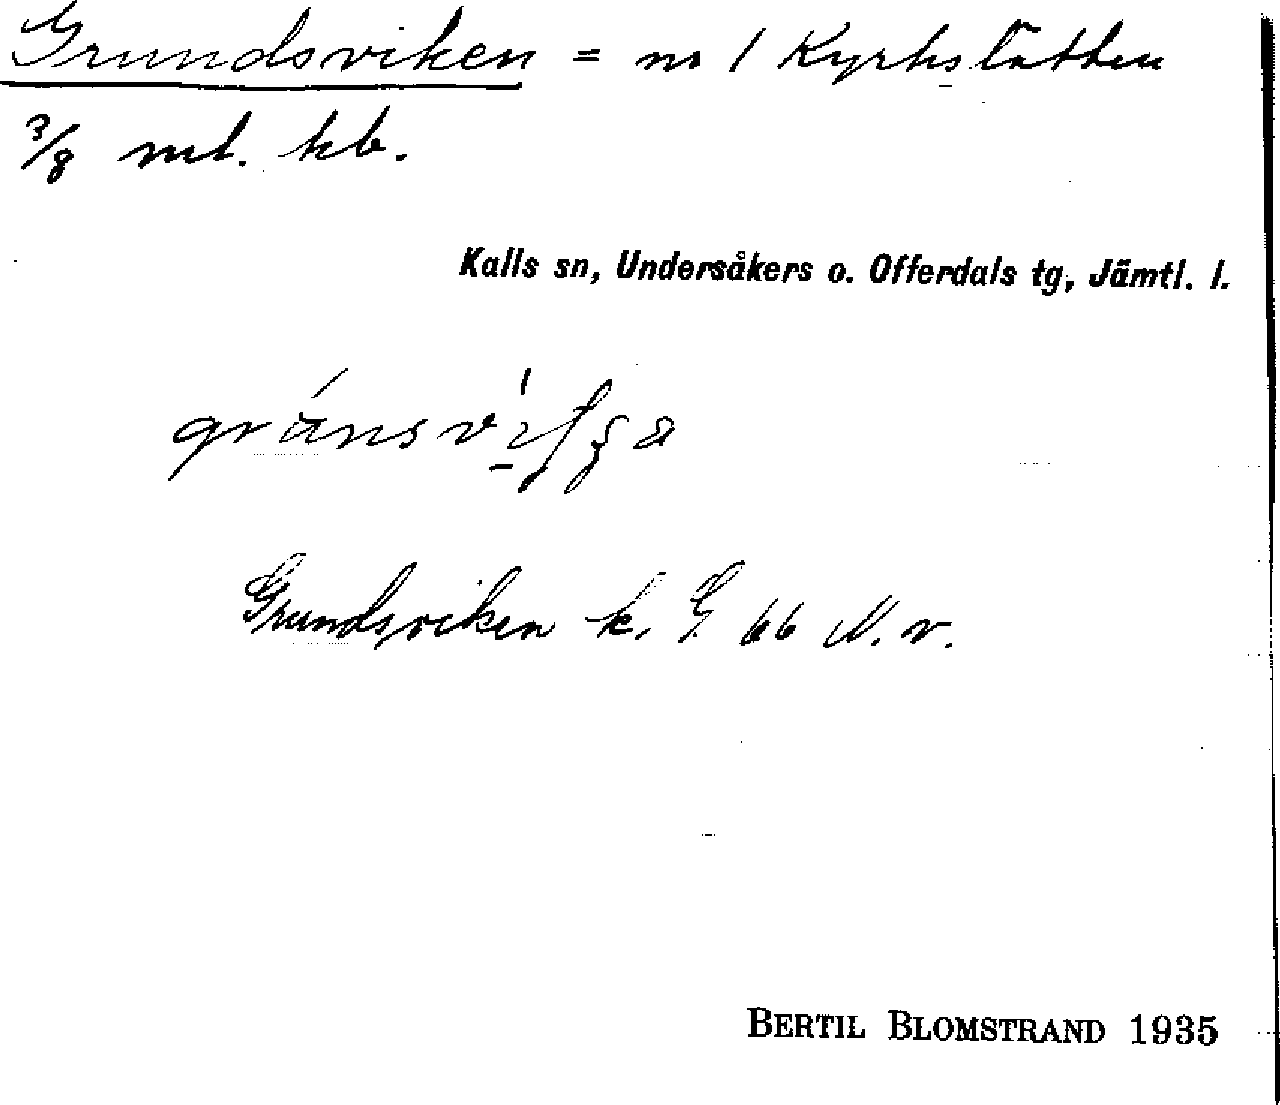 Grundsviken = nr 1 Kyrkslätten
3/8 mt. kb.
Kalls sn, Undersåkers o. Offerdals tg, Jämtl. l.
Grundsviken k. G 66 N. v.
BERTIL BLOMSTRAND 1935